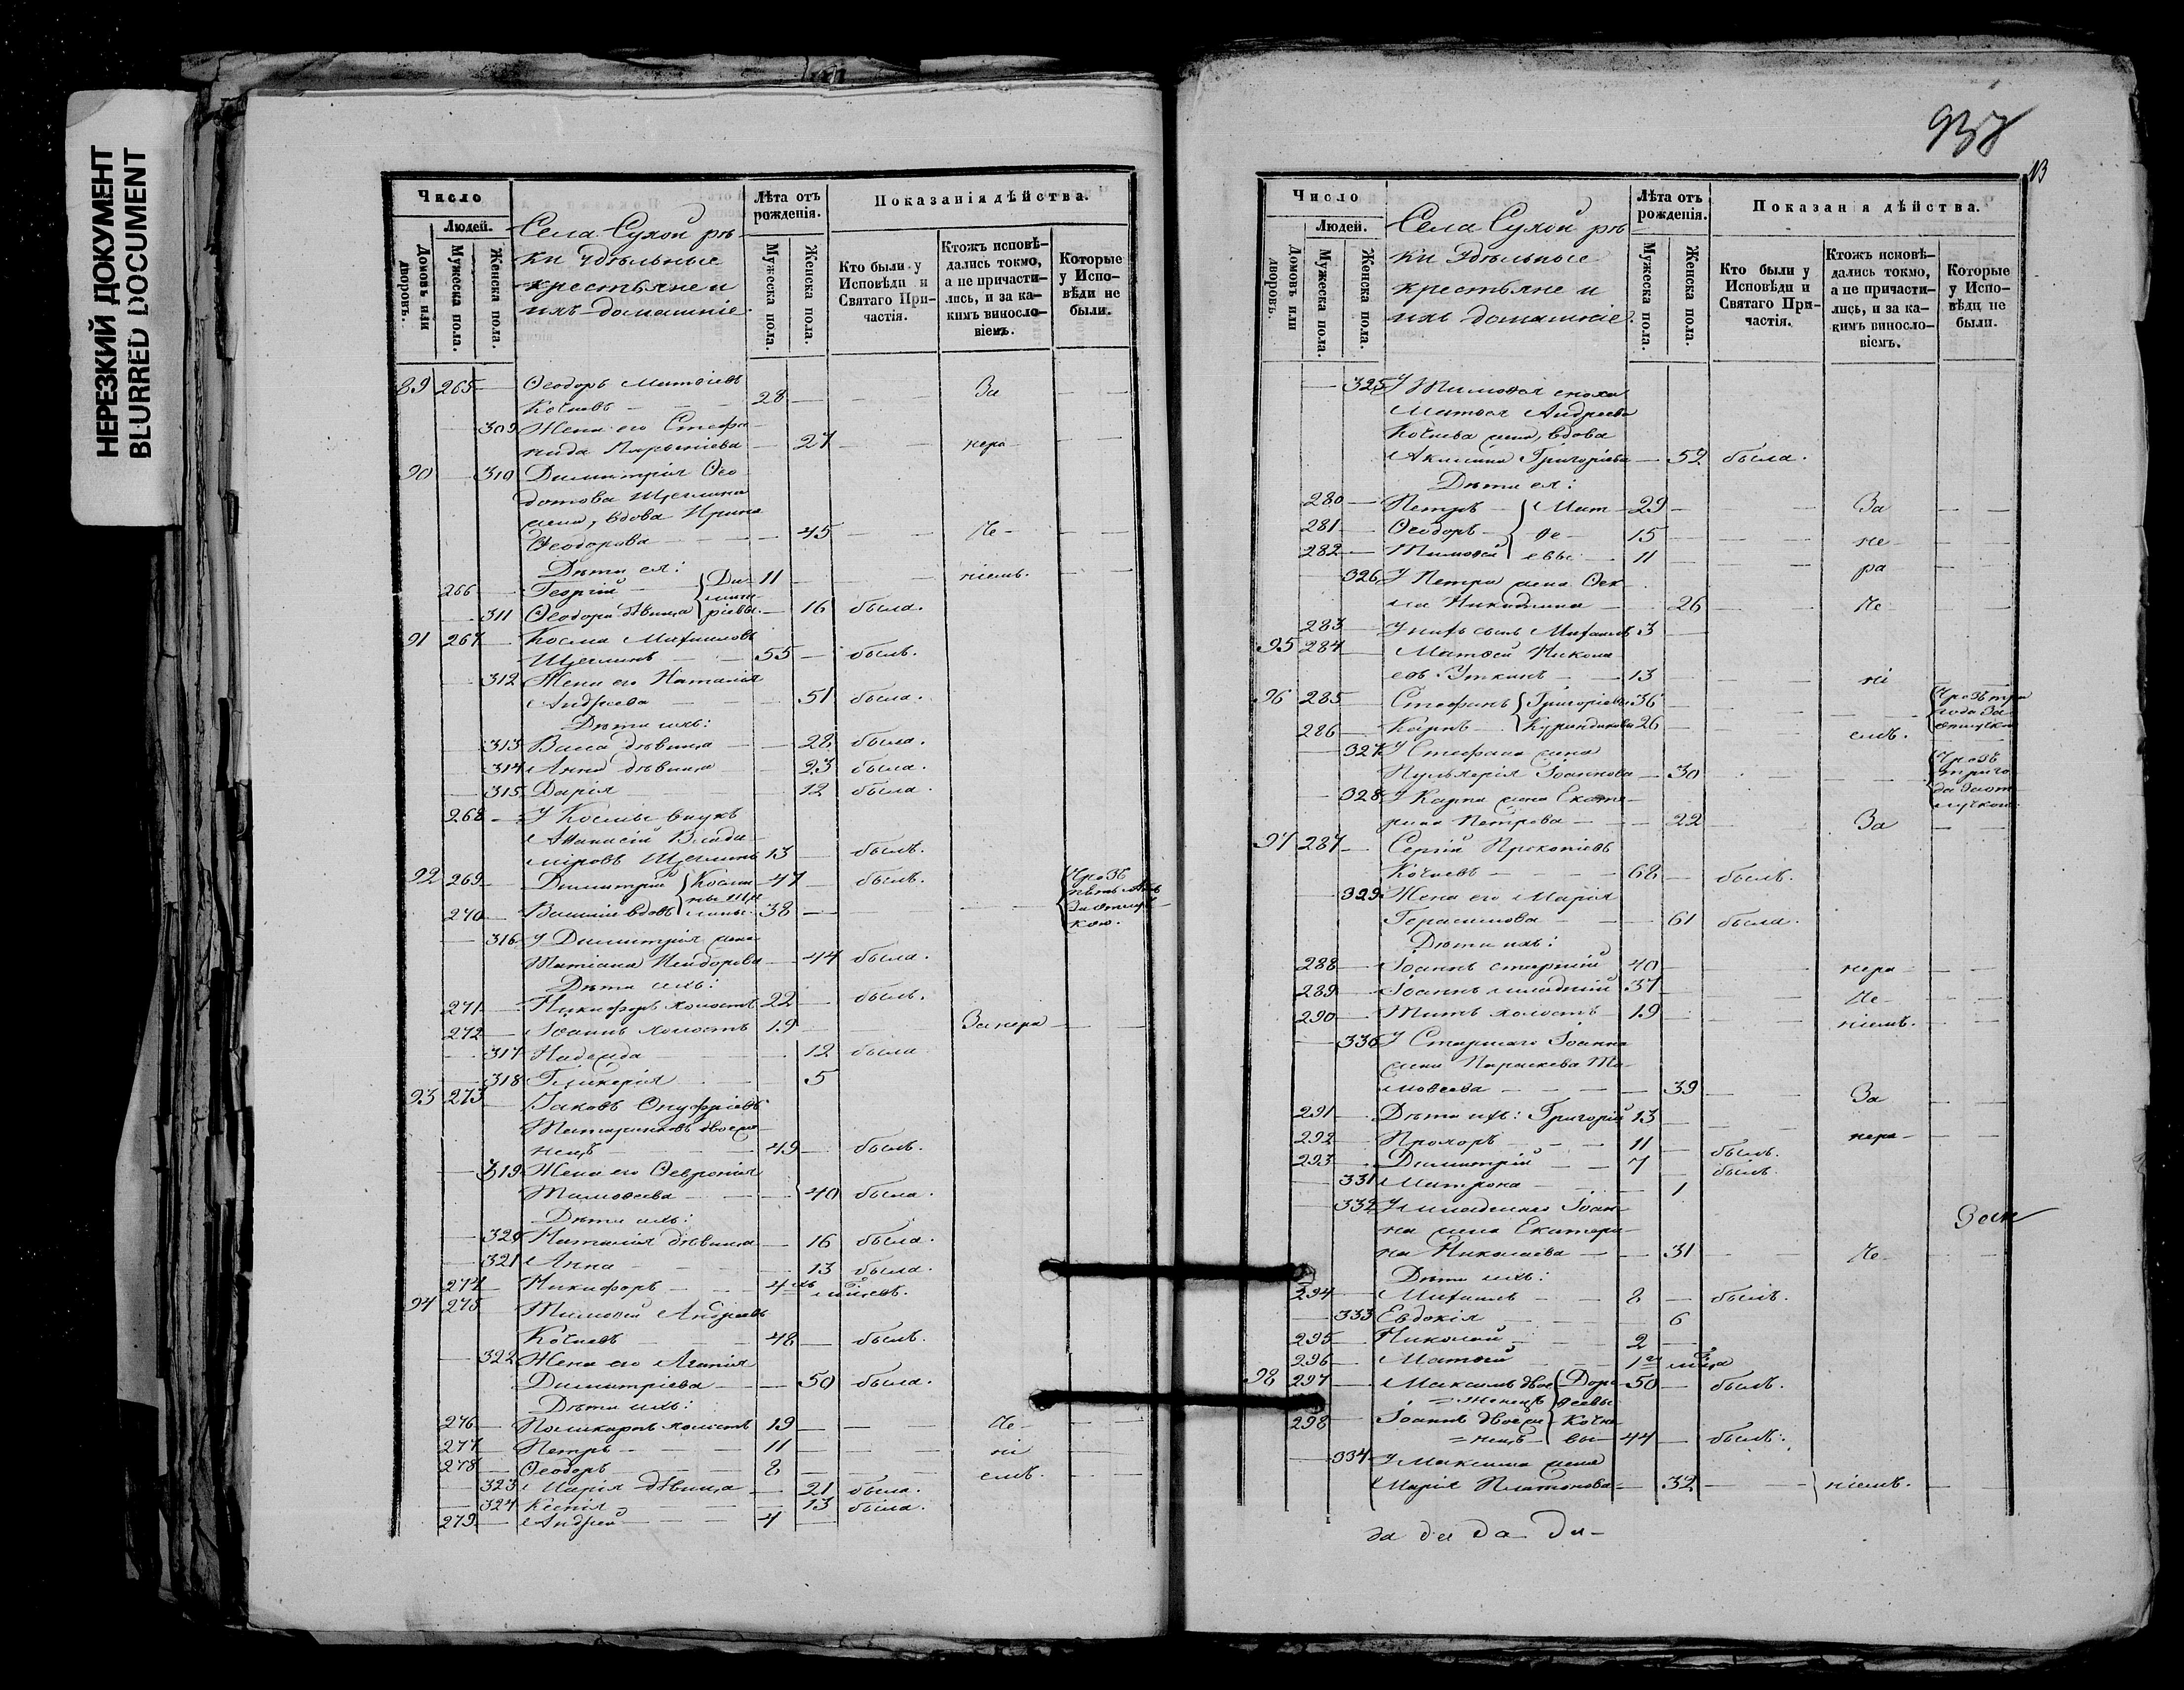 НЕРЕЗКИЙ ДОКУМЕНТ
BLURRED DOCUMENT
Число
Людей.
Домовъ или дворовъ.
Мужеска пола.
Женска пола.
Села Сухой рѣ-
ки Удѣльные
крестьяне и
ихъ домашніе.
Лѣта отъ рожденія.
Мужеска пола.
Женска пола.
Показанія дѣйства.
Кто были у Исповѣди и Святаго При-частія.
Ктожъ исповѣ-дались токмо, а не причасти-лись, и за ка-кимъ винословіемъ.
Которые у Испо-вѣди не были.
89 265 — Ѳеодоръ Матвіевъ
Кочневъ — 28 — За
309 Жена его Стефа-
нида — 27 — нера-
90 — 310 Димитрія Ѳео
дотова Щеглина
жена, вдова Ирина
Ѳеодорова — 45 — че-
Дѣти ея:
266 — Георгій { Ди- 11 — ніемъ.
311 Ѳеодора дѣвица { митріевы — 16 была.
91 267 — Косма Михаиловъ
Щеглинъ — 55 — былъ.
312 Жена его Наталія
Андреева — 51 была.
Дѣти ихъ:
313 Васса дѣвица — 28 была.
314 Анна дѣвица — 23 была.
315 Дарія — 12 была.
268 — У Космы внукъ
Аѳанасій Влади-
міровъ Щеглинъ 13 — былъ.
92 269 — Димитрій { Косми- 47 — былъ.
270 — Василій вдовъ 38 —
316 У Димитрія жена
Татіана — 44 была.
Дѣти ихъ:
271 — Никифоръ холостъ 22 — былъ.
272 — Іоаннъ холостъ 19 — За нера-
317 Надежда — 12 была
318 Гликерія — 5
93 273 Іаковъ Онуфріевъ
Татариновъ двоеже-
нецъ — 49 — былъ.
319 Жена его Ѳевронія
Тимоѳеева — 40 была.
Дѣти ихъ:
320 Наталія дѣвица — 16 была.
321 Анна — 13 была.
274 — Никифоръ — 4
94 275 Тимоѳей Андреевъ
Кочневъ — 48 — былъ.
322 Жена его Агапія
Димитріева — 50 была.
Дѣти ихъ:
276 — Поликарпъ холостъ 19 — че-
277 — Петръ — 11 — ні
278 — Ѳеодоръ — 8 — емъ.
323 Марія дѣвица — 21 была.
324 Ксенія — 13 была.
279 — Андрей — 4
937
13
Число
Людей.
Домовъ или дворовъ.
Мужеска пола.
Женска пола.
Села Сухой рѣ-
ки Удѣльные
крестьяне и
ихъ домашніе.
Лѣта отъ рожденія.
Мужеска пола.
Женска пола.
Показанія дѣйства.
Кто были у Исповѣди и Святаго При-частія.
Ктожъ исповѣ-дались токмо, а не причасти-лись, и за ка-кимъ винословіемъ.
Которые у Испо-вѣди не были.
325 У Тимоѳея сноха
Матвея Андреева
Кочнева жена, вдова
Акилина Григоріева — 52 была.
Дѣти ея:
280 — Петръ { Мат- 29 — За
281 — Ѳеодоръ { ѳе- 15 — не-
282 — Тимоѳей { евы — 11 — ра
326 У Петра жена Ѳек
ла Никитина — 26 — че-
283 — У нихъ сынъ Михаилъ 3 —
95 284 — Матвей Никола
евъ Уткинъ — 13 — ні
96 285 — Стефанъ { Григоріевы 36 —
286 — Карпъ 26 — емъ.
327 У Стефана жена
Пульхерія Іоаннова — 30
328 У Карпа жена Екате-
рина Петрова — 22 — За
97 287 — Сергій Прокопіевъ
Кочневъ — 68 — былъ.
329 Жена его Марія
Герасимова — 61 была.
Дѣти ихъ:
288 — Іоаннъ старшій 40 — нера-
289 — Іоаннъ младшій 37 — че-
290 — Титъ холостъ — 19 — ніемъ.
330 У Старшаго Іоанна
жена Параскева Ти-
моѳеева — 39 — За
291 — Дѣти ихъ: Григорій 13 —
292 — Прохоръ — 11 — былъ. нера-
293 — Димитрій — 7 — былъ.
331 Матрона — 1
332 У младшаго Іоан-
на жена Екатери-
на Николаева — 31 — че-
Дѣти ихъ:
294 — Михаилъ — 8 — былъ.
333 Евдокія — 6
295 — Николай — 2 —
296 — Матвій — 1
98 297 — Максимъ двое { Доро- 50 — былъ.
= женецъ { ѳеевы
298 — Іоаннъ двоеже { Кочне
= нецъ { вы — 44 — былъ.
334 У Максима жена
Марія Платонова — 32 — ніемъ.
да да да да-